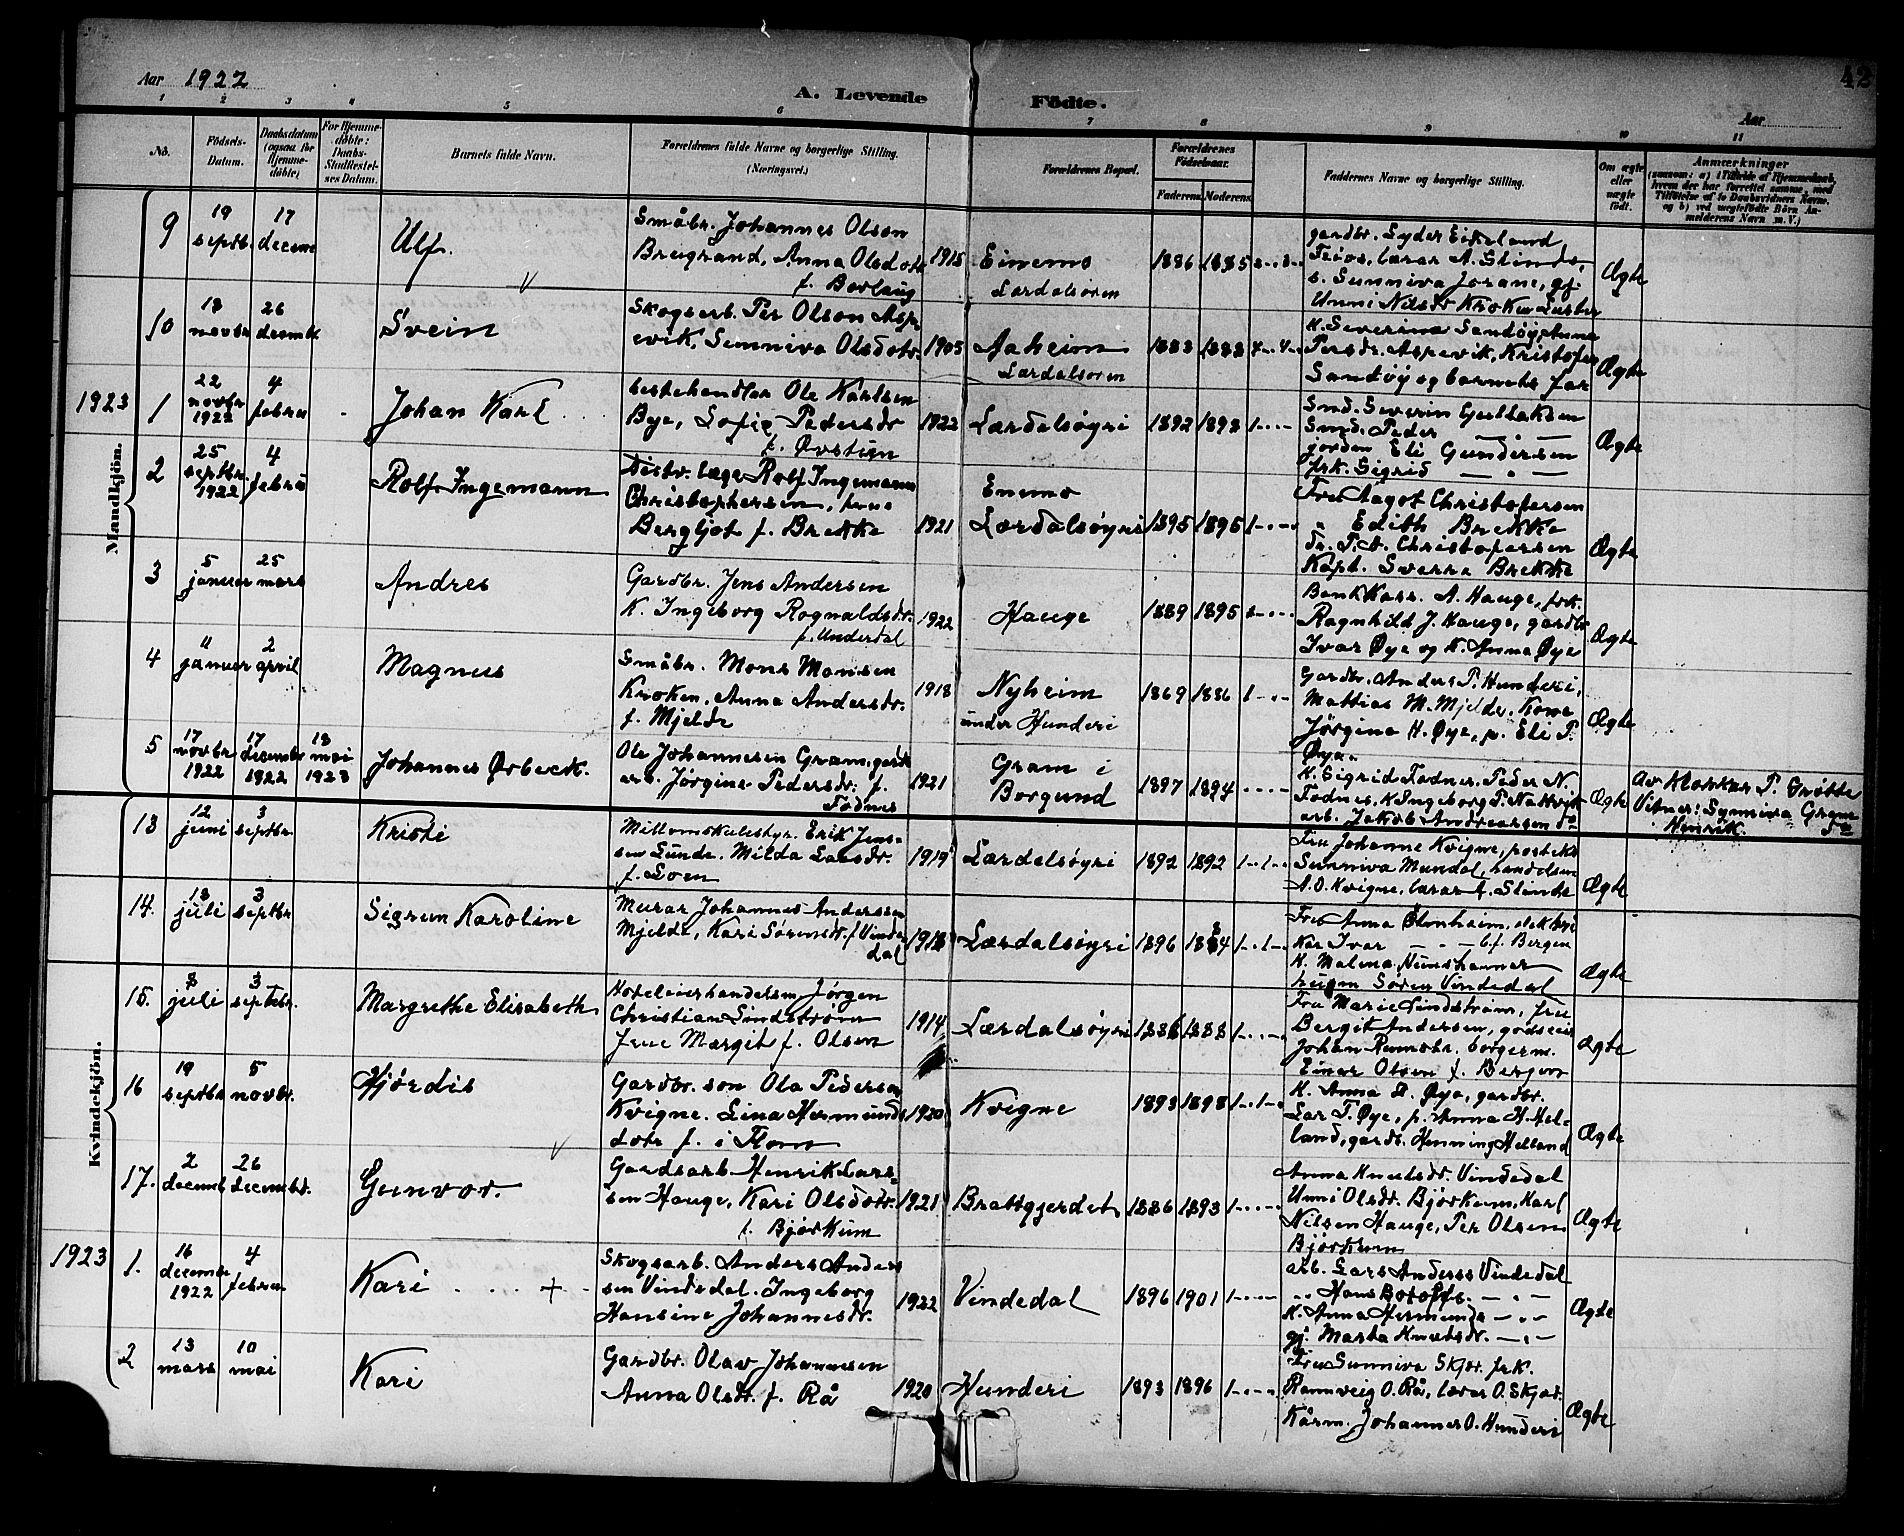 Aar 1922
A. Levende Födte.
42
Aar
1 2 3 4 5 6 7 8 9 10 11
No.
Födsels-Datum.
Daabsdatum (ogsaa for Hjemmedöbte)
For Hjemmedöbte: Daabs-Stadfæstelses Datum.
Barnets fulde Navn.
Forældrenes fulde Navne og borgerlige Stilling. (Næringsvei.)
Forældrenes Bopæl.
Forældrenes Födselsaar.
Faderens Moderens
Faddernes Navne og borgerlige Stilling.
Om ægte eller uægte födt.
Anmærkninger
Mandkjön.
9
19 septbr.
17 decem
Ulf.
Småbr. Johannes Olson
Brugrand, Anna Olsdotr
f. Borlaug
1915
Einemo
Lærdalsøren
1886 1885
gardbr. Lyder Eikeland
Feios, lærar A. Stinds,
s. Sunniva Jorane, gj.
Unni Nilsdr Kroken Luster
Ægte
10
18 novbr
26 decmbr
Svein
Skogsarb. Per Olson Asp-
evik, Sunniva Olsdotr.
1905
Aaheim
Lærdalsøren
1883 1883 4-.-4-.
K. Severina Sandøy, Anna
Persdr. Aspevik, Kristofer
Sandøy og barnets far
Ægte
1923
1
22 novbr 1922
4 febru
Johan Karl
hestehandler Ole Karlsen
Bye, Lofie Pedersdr
f. Øvstiin
1922
Lærdalsøyri
1892 1893
Smd. Severin Guttaksen
Smd. Peder — " —
jordm Eli Gundersen
frk. Sigrid — " —
Ægte
2
25 septbr. 1922
4 febru
Rolf Ingemann
Distr. læge Rolf Ingemann
Christophersen, frue
Bergljot f. Brekke
1921
Enemo
Lærdalsøyri
1895 1895
Fru Aagot Christofersen
" Edith Brekke
Dr. P.A. Christofersen
Kapt. Sverre Brekke
Ægte
3
5 januar
25 mars
Andres
Gardbr. Jens Andersen
K. Ingeborg Rognaldsdr.
f. Underdal
1922
Hauge
1889 1895
Bankkass. A. Hauge, frk.
Ragnhild J. Hauge, gardbr
Ivar Øye og K. Anna Øye
Ægte
4
11 januar
2 april
Magnus
Småbr. Mons Monsen
Kroken, Anna Andersdr.
f. Mjelde
1918
Nyheim
under Hunderi
1869 1886
Gardbr. Anders P. Hunderi,
Mattias M. Mjelde, Kone
Jørgine H. Øye, p. Eli P.
Øye.
Ægte
5
17 novbr 1922
17 decembr 1922
18 mai 1923
Johannes Ørbeck.
Ole Johannesen Gram, gards
arb. Jørgine Pedersdr. f.
Fodnes
1921
Gram i
Borgund
1897 1894
K. Sigrid Fodnes, Peder N.
Fodnes, K Ingeborg P. Nattvik
arb. Jakob Andreassen do
Ægte
Av Klokkar P. Grøtte
Vitner: Synniva Gram
Henrik do
Kvindekjön.
13
12 juni
3 septbr.
Kristi
Millomskulestyr. Erik Jens-
sen Lunde. Milda Larsdr.
f. Loen
1919
Lærdalsøyri
1892 1892 1-.-1-.
Fru Johanne Kvigne, posteksp
Sunniva Mundal, handelsm
A.O. Kvigne, lærar A. Stinds
Ægte
14.
13 juli
3 septbr
Sigrun Karoline
Murar Johannes Anderssen
Mjelde, Kari Sørensdr. f Vinde
dal
Lærdalsøyri
1896
Fru Anna Blenheim, elektri
Kar Ivar — " — b f. Bergen
K. Malena Hunshamar
Ægte
15.
8 juli
3 septbr.
Margrethe Elisabeth
Hoteleier, handelsm Jørgen
Christian Lindstrøm
frue Margit f. Olsen
1914
Lærdalsøyri
1886 1888
Fru Marie Lindstrøm, fru
Bergit Andersen, godseier
Johan Rumohr. borgerm.
Einar Olsen f. Bergen
Ægte
16
19 septbr
5 novbr.
Hjørdis
Gardbr. son Ola Pedersen
Kvigne. Lina Hermunds
dotr f. i Flom
1920
Kvigne
1893 1898
K. Anna D. Øye, gardbr.
Lar T. Øye, p. Anna H. Hel-
land, gardb. Henning Helland
Ægte
17.
2 decemb
26 decembr.
Gunvor.
Gardsarb Henrik Lars-
sen Hauge, Kari Olsdotr.
f. Bjørkum
1921
Brattgjerdet
1886 1893
Anna Knutsdr. Vindedal
Unni Olsdr. Bjørkum, Karl
Nilsen Hauge, Per Olsen
Bjørkum
Ægte
1923
1.
16 decemer 1922
4 februar
Kari +
Skogsarb. Anders Anders
sen Vindedal. Ingeborg
Hansine Johannesdr.
1922
Vindedal
1896 1901
arb. Lars Anderss Vindedal
" Hans Botolfs. — " —
K. Anna Hermunds — " —
gj. Marta Knutsdr. — " —
Ægte
2
13 mars
10 mai
Kari
Gardbr. Olav Johannesen
Anna Olsdr. f. Rå
1920
Hunderi
1893 1896
Fru Sunniva Skjør. frk.
Rannveig O. Rå, lærar O. Skjør.
Kårm. Johannes O. Hunderi
Ægte